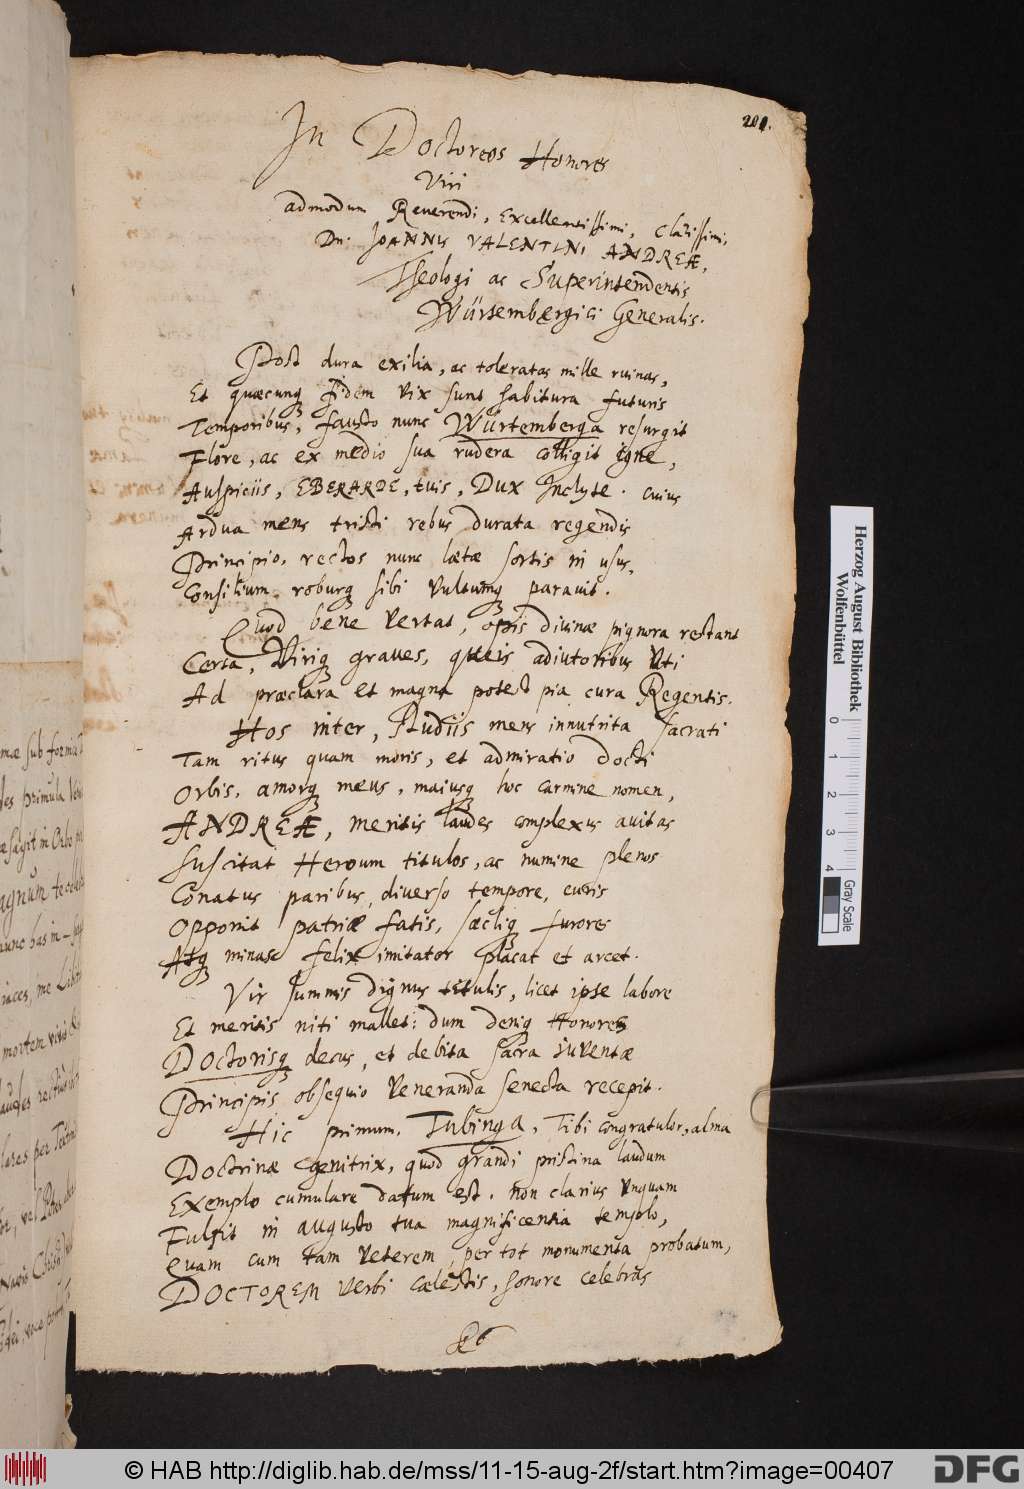 201.
In Doctoreos Honores
Viri
admodum Reverendi, Excellentissimi, Clarissimi,
Dn: IOANNIS VALENTINI ANDREÆ,
Theologi ac Superintendentis
Würtembergici Generalis.
Post dura exilia, ac toleratas mille ruinas,
Et quæcunq fidem vix sunt habitura futuris
Temporibus, fausto nunc Würtemberga resurgit
Flore, ac ex medio sua rudera colligit igne,
Auspiciis, EBERARDE, tuis, Dux Inclyte. cuius
Ardua mens tristi rebus durata regendis
Principio, rectos nunc lætæ sortis in usus,
Consilium roburq sibi vultumq paravit.
Quod bene vertat, opis divinæ pignora restant
Certa, Viriq graves, queis adiutoribus uti
Ad præclara et magna potest pia cura Regentis.
Hos inter, Studiis mens innutrita sacrati
Tam ritus quam moris, et admiratio docti
Orbis, amorq meus, maiusq hoc carmine nomen,
ANDREÆ, meritis laudes complexus avitas
Suscitat Heroum titulos, ac numine plenos
Conatus paribus, diverso tempore, curis
Opponit patriæ fatis, sæcliq furores
Atq minas felix imitator placat et arcet.
Vir summis dignus titulis, licet ipse labore
Et meritis niti mallet: dum deniq Honores
Doctorisq decus, et debita sacra iuventæ
Principis obsequio veneranda senecta recepit.
Hic primum, Tubinga, Tibi congratulor, alma
Doctrinæ genitrix, quod grandi pristina laudum
Exemplo cumulare datum est. non clarius unquam
Fulsit in augusto tua magnificentia templo,
Quam cum tam veterem, per tot monumenta probatum,
DOCTOREM verbi cælestis, honore celebras
mæ sub forma
primula
in Orbe
nunc has in
me
mortem
per
vel
Herzog August Bibliothek
Wolfenbüttel
0 1 2 3 4
Gray Scale
© HAB http://diglib.hab.de/mss/11-15-aug-2f/start.htm?image=00407
DFG